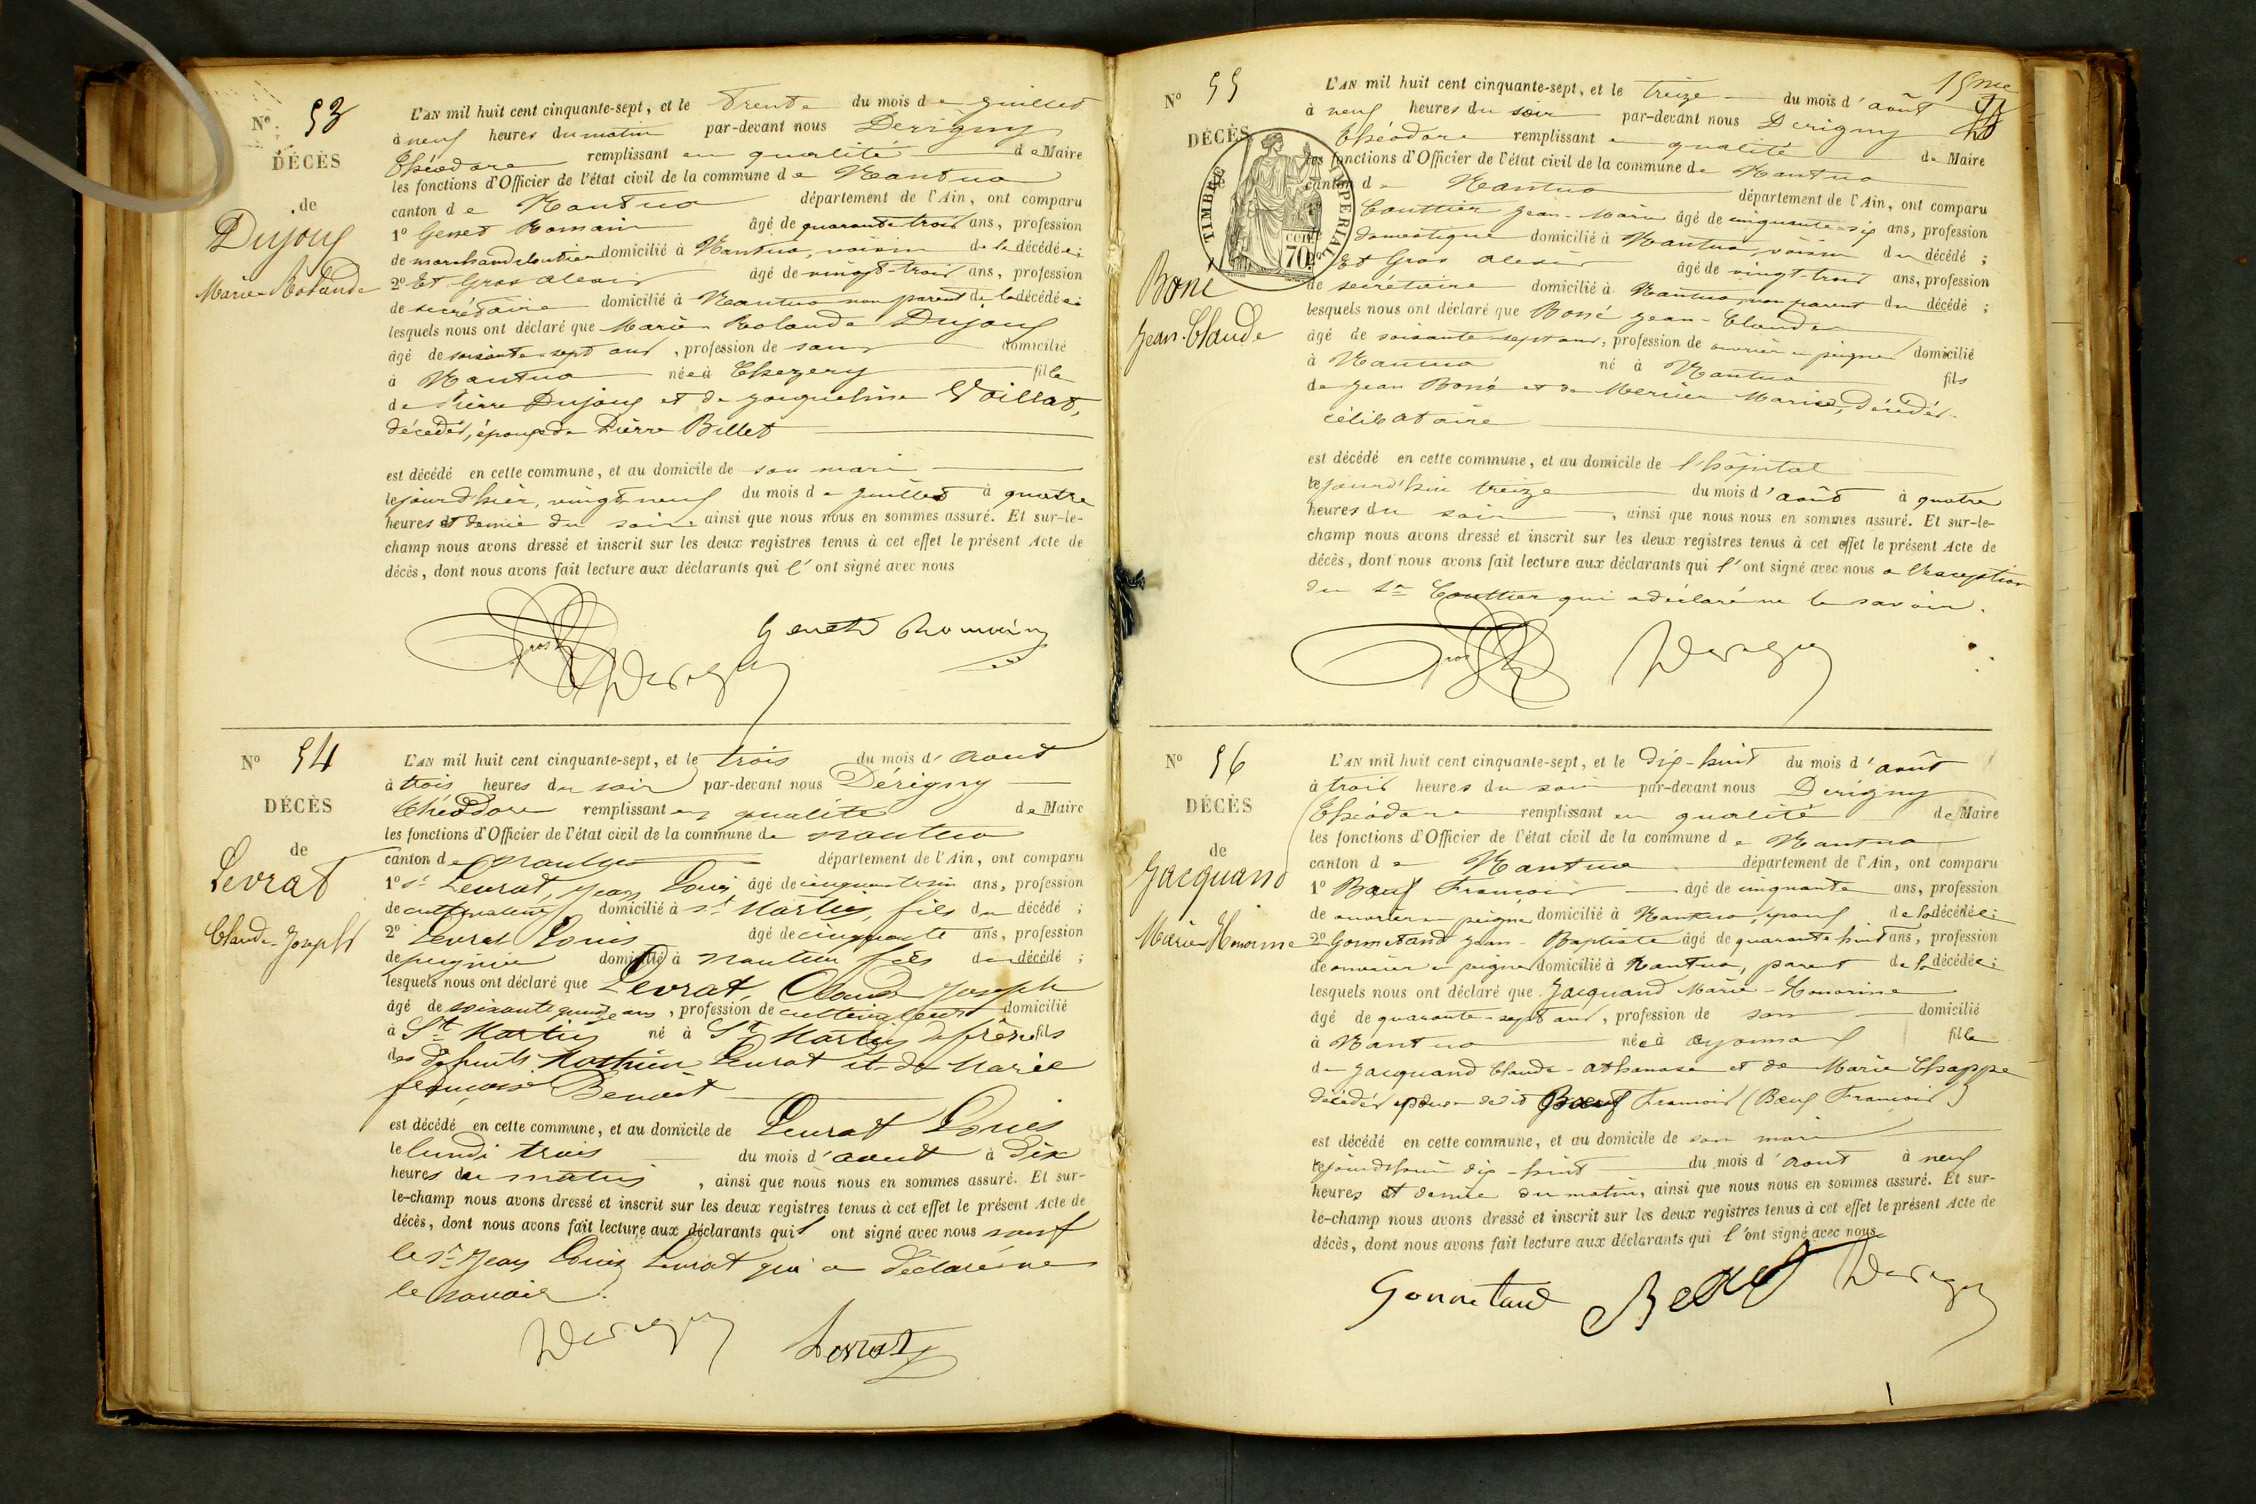 N° 53
DÉCÈS
de
Dujoug
Marie Rolande
L'AN mil huit cent cinquante-sept, et le trente du mois de juillet
à neuf heures du matin par-devant nous Derigny
Théodore remplissant en qualité de Maire
les fonctions d'Officier de l'état civil de la commune de Nantua
canton de Nantua département de l'Ain, ont comparu
1° Genet Romain âgé de quarante trois ans, profession
de marchand cloutier domicilié à Nantua, voisin de la décédée;
2° Et Gros Alexis âgé de vingt-trois ans, profession
de secrétaire domicilié à Nantua non parent de la décédée
lesquels nous ont déclaré que Marie Rolande Dujoug
âgé de soixante-sept ans, profession de sans domicilié
à Nantua née à Chezery fille
de Pierre Dujoug et de Jacqueline Voillat,
décédés, épouse de Pierre Billet
est décédé en cette commune, et au domicile de son mari
le jour d'hier, vingt-neuf du mois de juillet à quatre
heures et demie du soir ainsi que nous nous en sommes assuré. Et sur-le-
champ nous avons dressé et inscrit sur les deux registres tenus à cet effet le présent Acte de
décès, dont nous avons fait lecture aux déclarants qui l'ont signé avec nous
Gros Genet Romain
Derigny
N° 54
DÉCÈS
de
Levrat
Claude-Joseph
L'AN mil huit cent cinquante-sept, et le trois du mois d'aout
à trois heures du soir par-devant nous Dérigny
Théodore remplissant en qualité de Maire
les fonctions d'Officier de l'état civil de la commune de nantua
canton de Nantua département de l'Ain, ont comparu
1° sr Levrat, Jean Louis âgé de ans, profession
de cultivateur domicilié à st Martin, fils du décédé;
2° Levrat Louis âgé de cinquante ans, profession
de peignier domicilié à nantua fils du décédé;
lesquels nous ont déclaré que Levrat, Claude Joseph
âgé de soixante quinze ans, profession de cultivateur domicilié
à St Martin né à St Martin du frêne fils
des défunts Mathieu Levrat et de Marie
françoise Benoit
est décédé en cette commune, et au domicile de Levrat Louis
le lundi trois du mois d'aout à dix
heures du matin, ainsi que nous nous en sommes assuré. Et sur-
le-champ nous avons dressé et inscrit sur les deux registres tenus à cet effet le présent Acte de
décès, dont nous avons fait lecture aux déclarants qui l'ont signé avec nous sauf
le sr Jean Louis Levrat qui a déclaré ne
le savoir.
Derigny Levrat
15me
N° 55
DÉCÈS
TIMBRE IMPERIAL
70 cent
Boné
Jean-Claude
L'AN mil huit cent cinquante-sept, et le treize du mois d'août
à neuf heures du soir par-devant nous Derigny
Théodore remplissant en qualité de Maire
les fonctions d'Officier de l'état civil de la commune de Nantua
canton de Nantua département de l'Ain, ont comparu
Couttier Jean-Marie âgé de cinquante-six ans, profession
domestique domicilié à Nantua, voisin du décédé;
Et Gros Alexis âgé de vingt-trois ans, profession
de secrétaire domicilié à Nantua, non parent du décédé;
lesquels nous ont déclaré que Boné Jean-Claude
âgé de soixante-sept ans, profession de ouvrier en peignes domicilié
à Nantua né à Nantua fils
de Jean Boné et de Mercier Marie, décédés
célibataire
est décédé en cette commune, et au domicile de l'hôpital
le jourd'hui treize du mois d'août à quatre
heures du soir, ainsi que nous nous en sommes assuré. Et sur-le-
champ nous avons dressé et inscrit sur les deux registres tenus à cet effet le présent Acte de
décès, dont nous avons fait lecture aux déclarants qui l'ont signé avec nous a l'exception
du sr Couttier qui a déclaré ne le savoir.
Gros Derigny
N° 56
DÉCÈS
de
Jacquand
Marie-Honorine
L'AN mil huit cent cinquante-sept, et le dix-huit du mois d'août
à trois heures du soir par-devant nous Derigny
Théodore remplissant en qualité de Maire
les fonctions d'Officier de l'état civil de la commune de Nantua
canton de Nantua département de l'Ain, ont comparu
1° Bœuf François âgé de cinquante ans, profession
de ouvrier en peignes domicilié à Nantua, époux de la décédée;
2° Gonnetand Jean-Baptiste âgé de quarante huit ans, profession
de ouvrier en peignes domicilié à Nantua, parent de la décédée;
lesquels nous ont déclaré que Jacquand Marie-Honorine
âgé de quarante-sept ans, profession de sans domicilié
à Nantua née à oyonnax fille
de Jacquand Claude-Athanase et de Marie Chappe
décédés épouse dudit Bœuf François (Bœuf François)
est décédé en cette commune, et au domicile de son mari
le jourd'hui dix-huit du mois d'aout à neuf
heures et demie du matin, ainsi que nous nous en sommes assuré. Et sur-
le-champ nous avons dressé et inscrit sur les deux registres tenus à cet effet le présent Acte de
décès, dont nous avons fait lecture aux déclarants qui l'ont signé avec nous
Gonnetand Bœuf Derigny